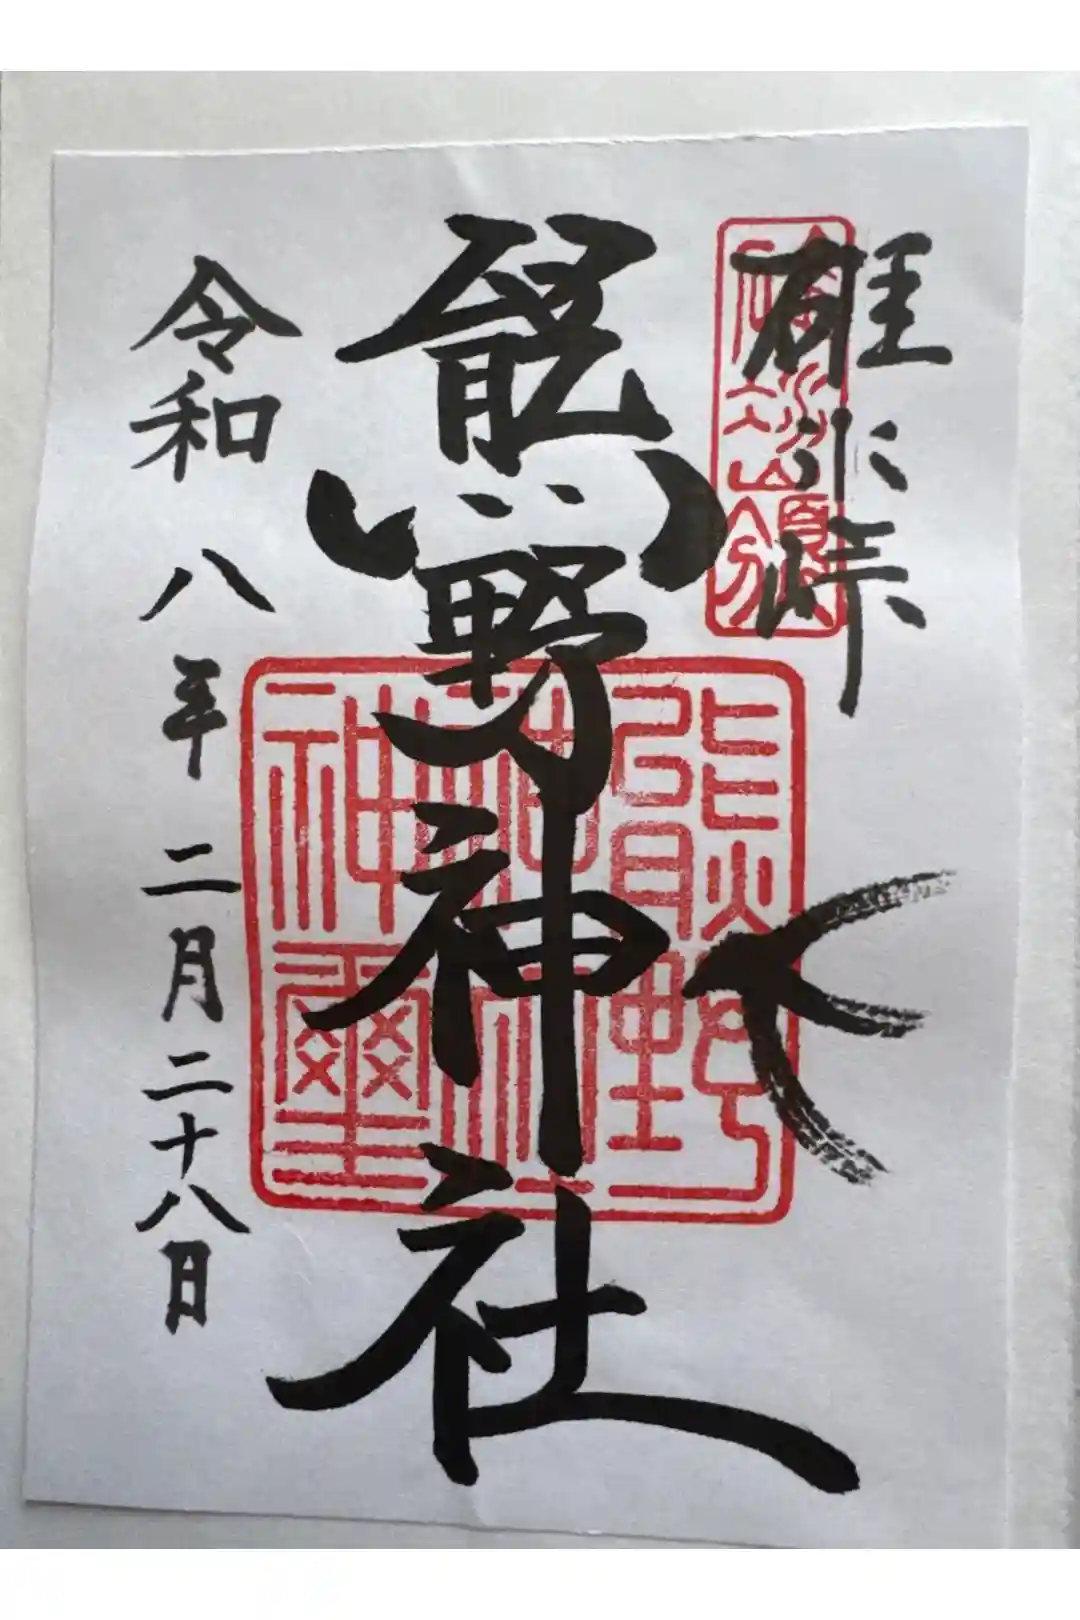 碓氷峠
熊野神社
令和八年二月二十八日
熊野
神社
神璽